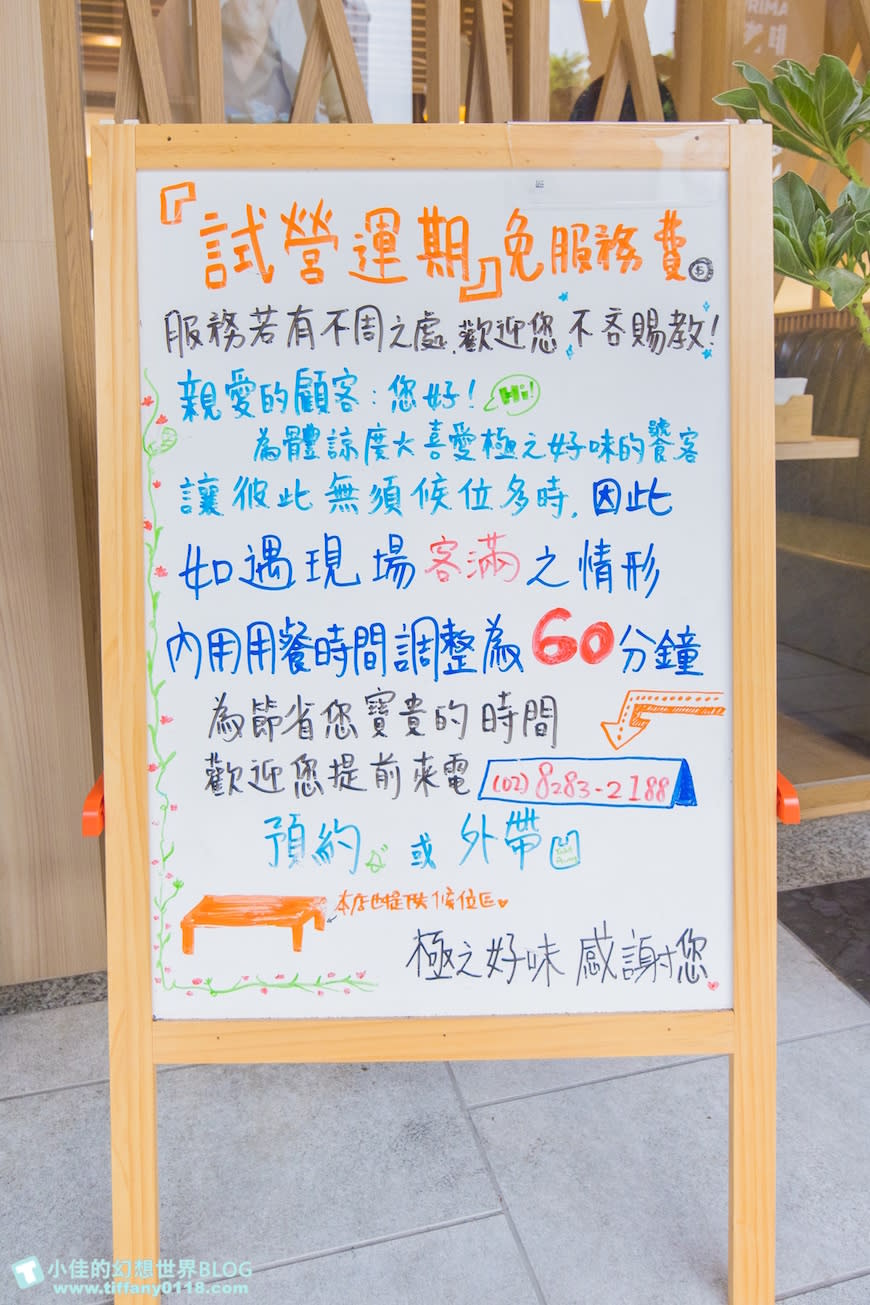 『試營運期』免服務費
服務若有不周之處,歡迎您不吝賜教!
親愛的顧客:您好! Hi!
為體諒度大喜愛極之好味的饕客
讓彼此無須候位多時,因此
如遇現場客滿之情形
內用用餐時間調整為60分鐘
為節省您寶貴的時間
歡迎您提前來電 (02)8283-2188
預約或外帶
本店也提供候位區
極之好味 感謝您
小佳的幻想世界BLOG
www.tiffany0118.com